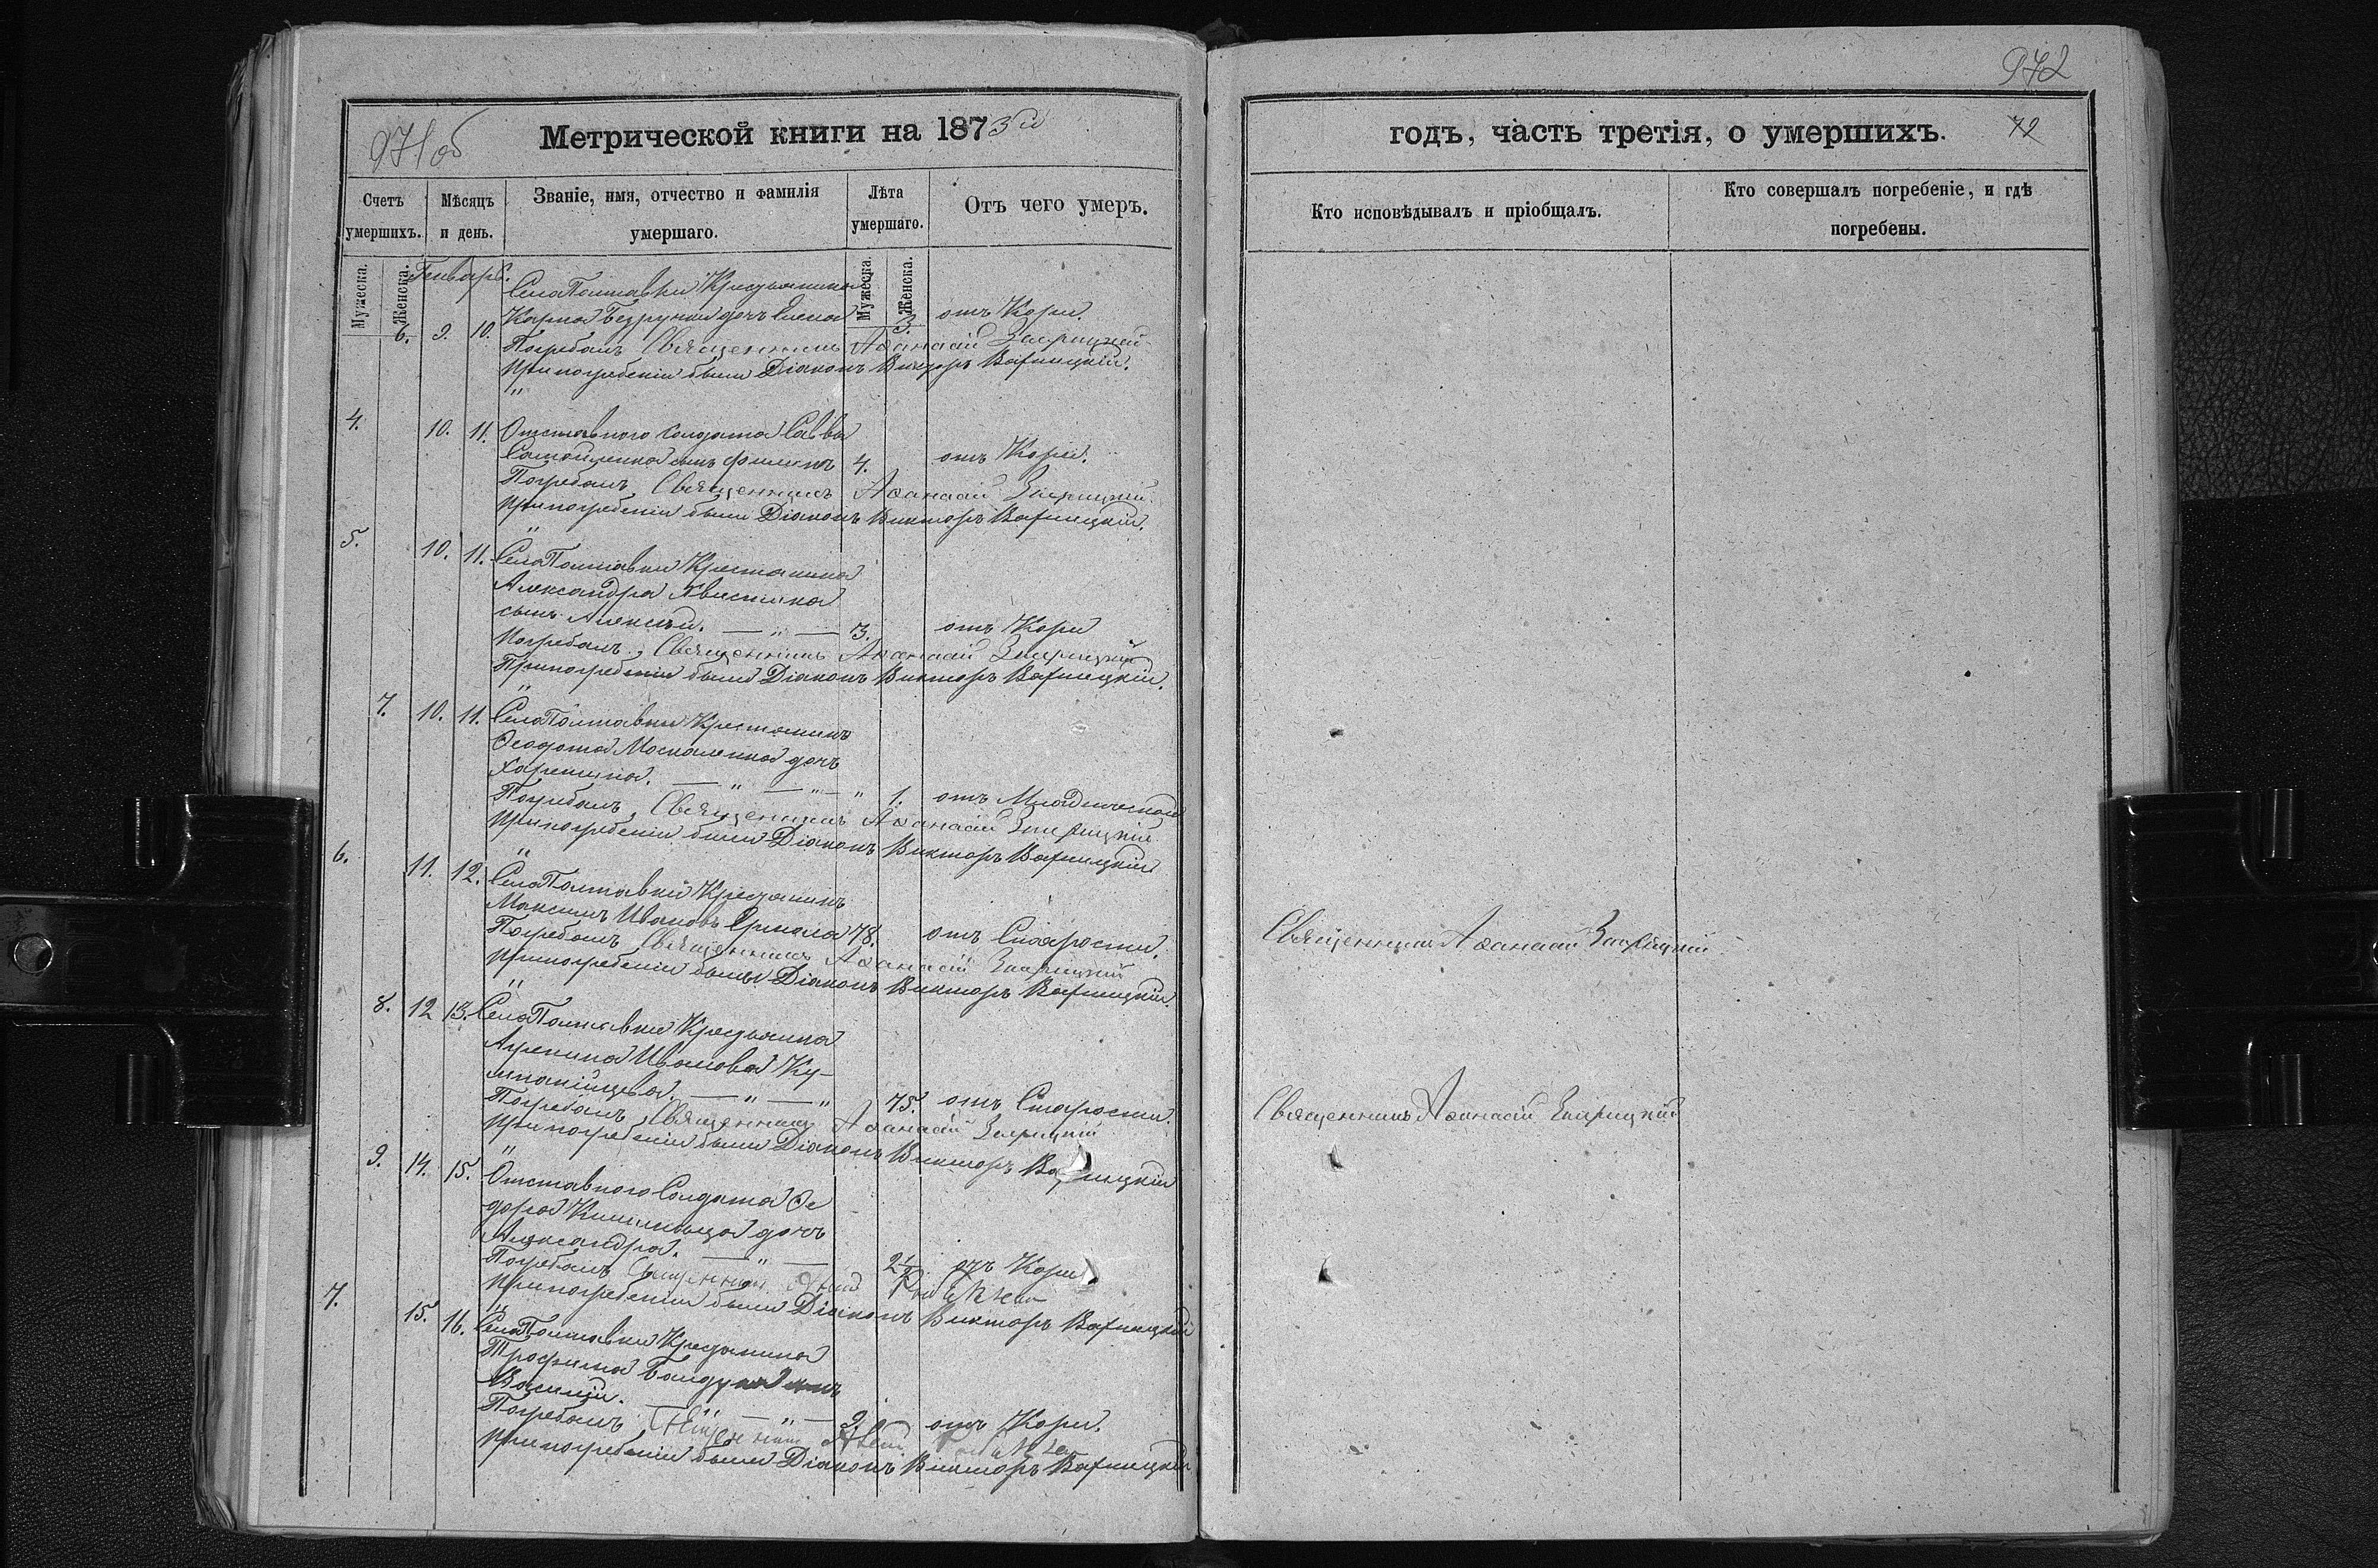 971 об
Метрической книги на 1873й
Счетъ умершихъ.
Мужеска.
Женска.
Мѣсяцъ и день.
Званіе, имя, отчество и фамилія
умершаго.
Лѣта
умершаго.
Мужеска.
Женска.
Отъ чего умеръ.
Генварь.
Села Полтавки Крестьянина
6. 9. 10. Карпа дочь Елена 3. отъ Кори.
Погребалъ Священникъ Аѳанасій
При погребеніи были Діаконъ Викторъ Варницкій.
"
4. 10. 11. Отставного Солдата Савва
Самойленка сынъ Филипъ 4. отъ Кори.
Погребалъ Священникъ Аѳанасій
При погребеніи были Діаконъ Викторъ Варницкій.
"
5. 10. 11. Села Полтавки Крестьянина
Александра
сынъ Алексѣй. — " — 3. отъ Кори
Погребалъ Священникъ Аѳанасій
При погребеніи были Діаконъ Викторъ Варницкій.
"
7. 10. 11. Села Полтавки Крестьянинъ
Ѳеодота Москаленка дочь
Харитина. — " — " — " 1. отъ Младенческой
Погребалъ Священникъ Аѳанасій
При погребеніи были Діаконъ Викторъ Варницкій
"
6. 11. 12. Села Полтавки Крестьянинъ
Максимъ Ивановъ 78. отъ Старости. Священникъ Аѳанасій
Погребалъ Священникъ Аѳанасій
При погребеніи были Діаконъ Викторъ Варницкій.
"
8. 12 13. Села Полтавки Крестьянка
Агрепина Иванова Ку-
мпанійцева. — " — " 75. отъ Старости. Священникъ Аѳанасій
Погребалъ Священникъ Аѳанасій
При погребеніи были Діаконъ Викторъ Варницкій
"
9. 14. 15. Отставного Солдата Ѳе
дора дочь
Александра. — " — 2½. отъ Кори
Погребалъ Священникъ
При погребеніи были Діаконъ Викторъ Варницкій
"
7. 15. 16. Села Полтавки Крестьянина
Трофима
Василій. — " — " — 2. отъ Кори.
Погребалъ Священникъ
При погребеніи были Діаконъ Викторъ Варницкій
972
годъ, часть третія, о умершихъ.
72
Кто исповѣдывалъ и пріобщалъ.
Кто совершалъ погребеніе, и гдѣ
погребены.